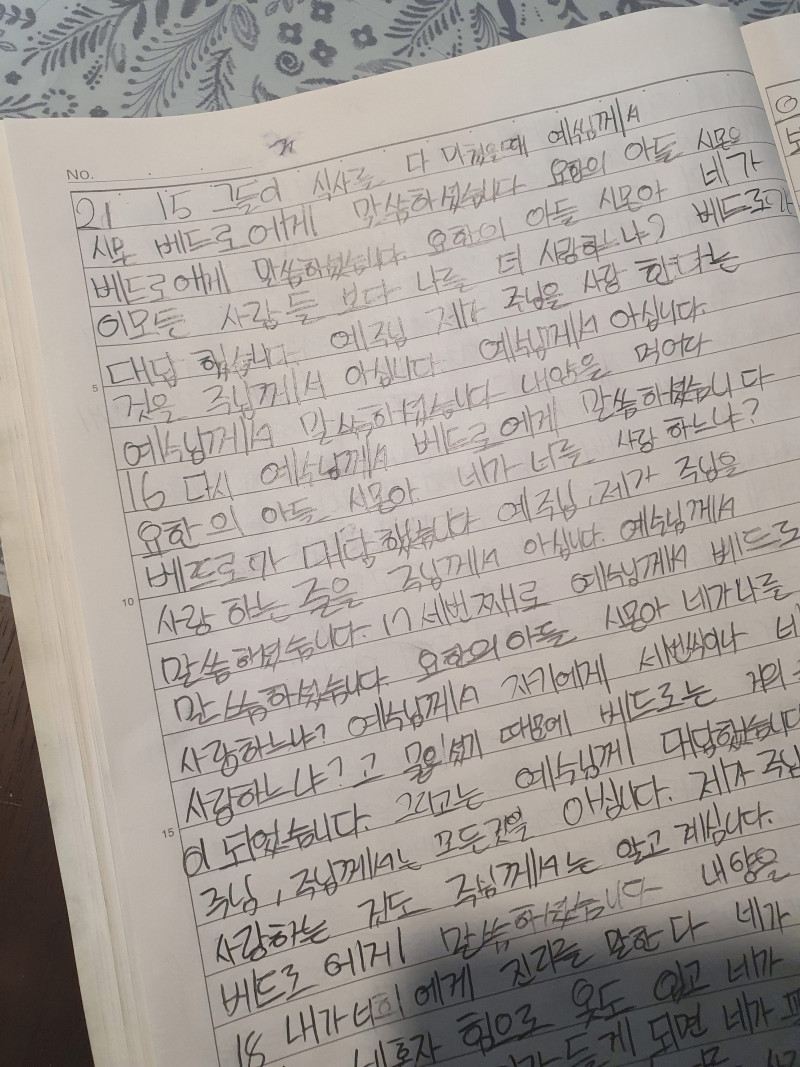 No.
21 15 그들이 식사를 다 마쳤을때 예수님께서
시몬 베드로에게 말씀하셨습니다 요한의 아들 시몬
베드로에게 말씀하셨습니다. 요한의 아들 시몬아 네가
이모든 사람들 보다 나를 더 사랑하느냐? 베드로가
대답 했습니다. 예 주님 제가 주님을 사랑 한다는
5
것을 주님께서 아십니다 예수님께서 아십니다.
예수님께서 말씀하셨습니다 내양을 먹여다
16 다시 예수님께서 베드로에게 말씀하셨습니다
요한의 아들 시몬아 네가 너를 사랑 하느냐?
베드로가 대답했습니다 예 주님, 제가 주님을
10
사랑 하는 줄을 주님께서 아십니다. 예수님께서
말씀하셨습니다. 17 세번째로 예수님께서 베드로
말씀하셨습니다 요한의 아들 시몬아 네가나를
사랑하느냐? 예수님께서 자기에게 세번씩이나
사랑하느냐? 고 물으셨기 때문에 베드로는 거의
15
이 되었습니다. 그리고는 예수님께 대답했습니다
주님, 주님께서는 모든것을 아십니다. 제가 주님
사랑하는 것도 주님께서는 알고 계십니다.
베드로 에게 말씀하셨습니다 내양을
18 내가 너희에게 진리를 말한다 네가
네혼자 힘으로 옷도 입고 네가
들게 되면 네가